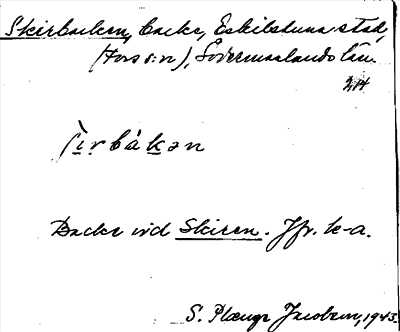 Skirbacken, backe, Eskilstuna stad,
(Fors s:n), Södermanlands län.
214
ʃìrbàkən
Backe vid Skiren. Jfr. k-a.
S. Plænge Jacobson, 1943.